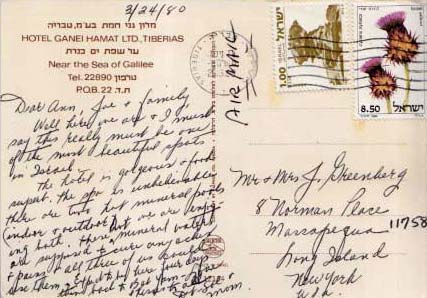 3/24/80
מלון גני חמת בע"מ, טבריה
HOTEL GANEI HAMAT LTD., TIBERIAS
על שפת ים כנרת
Near the Sea of Galilee
Tel. 22890 טלפון
P.O.B. 22 ת.ד.
Dear Ann, Joe & family
Well here we are & I must
say this really must be one
of the most beautiful spots
in Israel.
The hotel is gorgeous & food
superb. The spa is unbelievable
there are two hot mineral pools
indoor & outdoor but we are enjoy-
ing both. These mineral waters
are supposed to cure any aches
& pains & all three of us could
use them. Expect to be here four days
then back to Bat Yam.
& Mom.
AIR MAIL
TIBERIAS
ישראל
1.00
8.50
ישראל
Mr & Mrs J. Greenberg
8 Norman Place
Massapequa 11758
Long Island
New York
U.S.A.